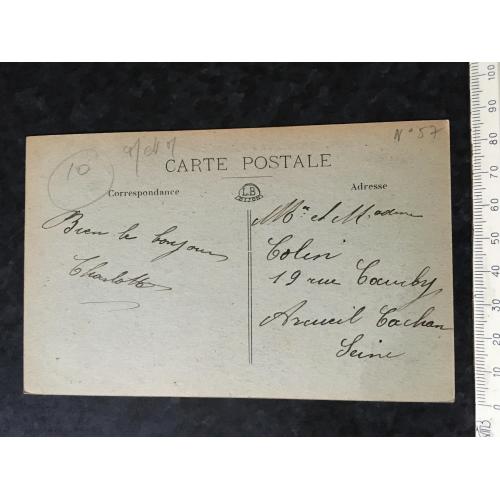 10
N° 57
CARTE POSTALE
Correspondance
LB
DIJON
Adresse
Bien le bonjour
Charlotte
Mr et Madame
Colin
19 rue
Arcueil Cachan
Seine
100
90
80
70
60
50
40
30
20
10
0